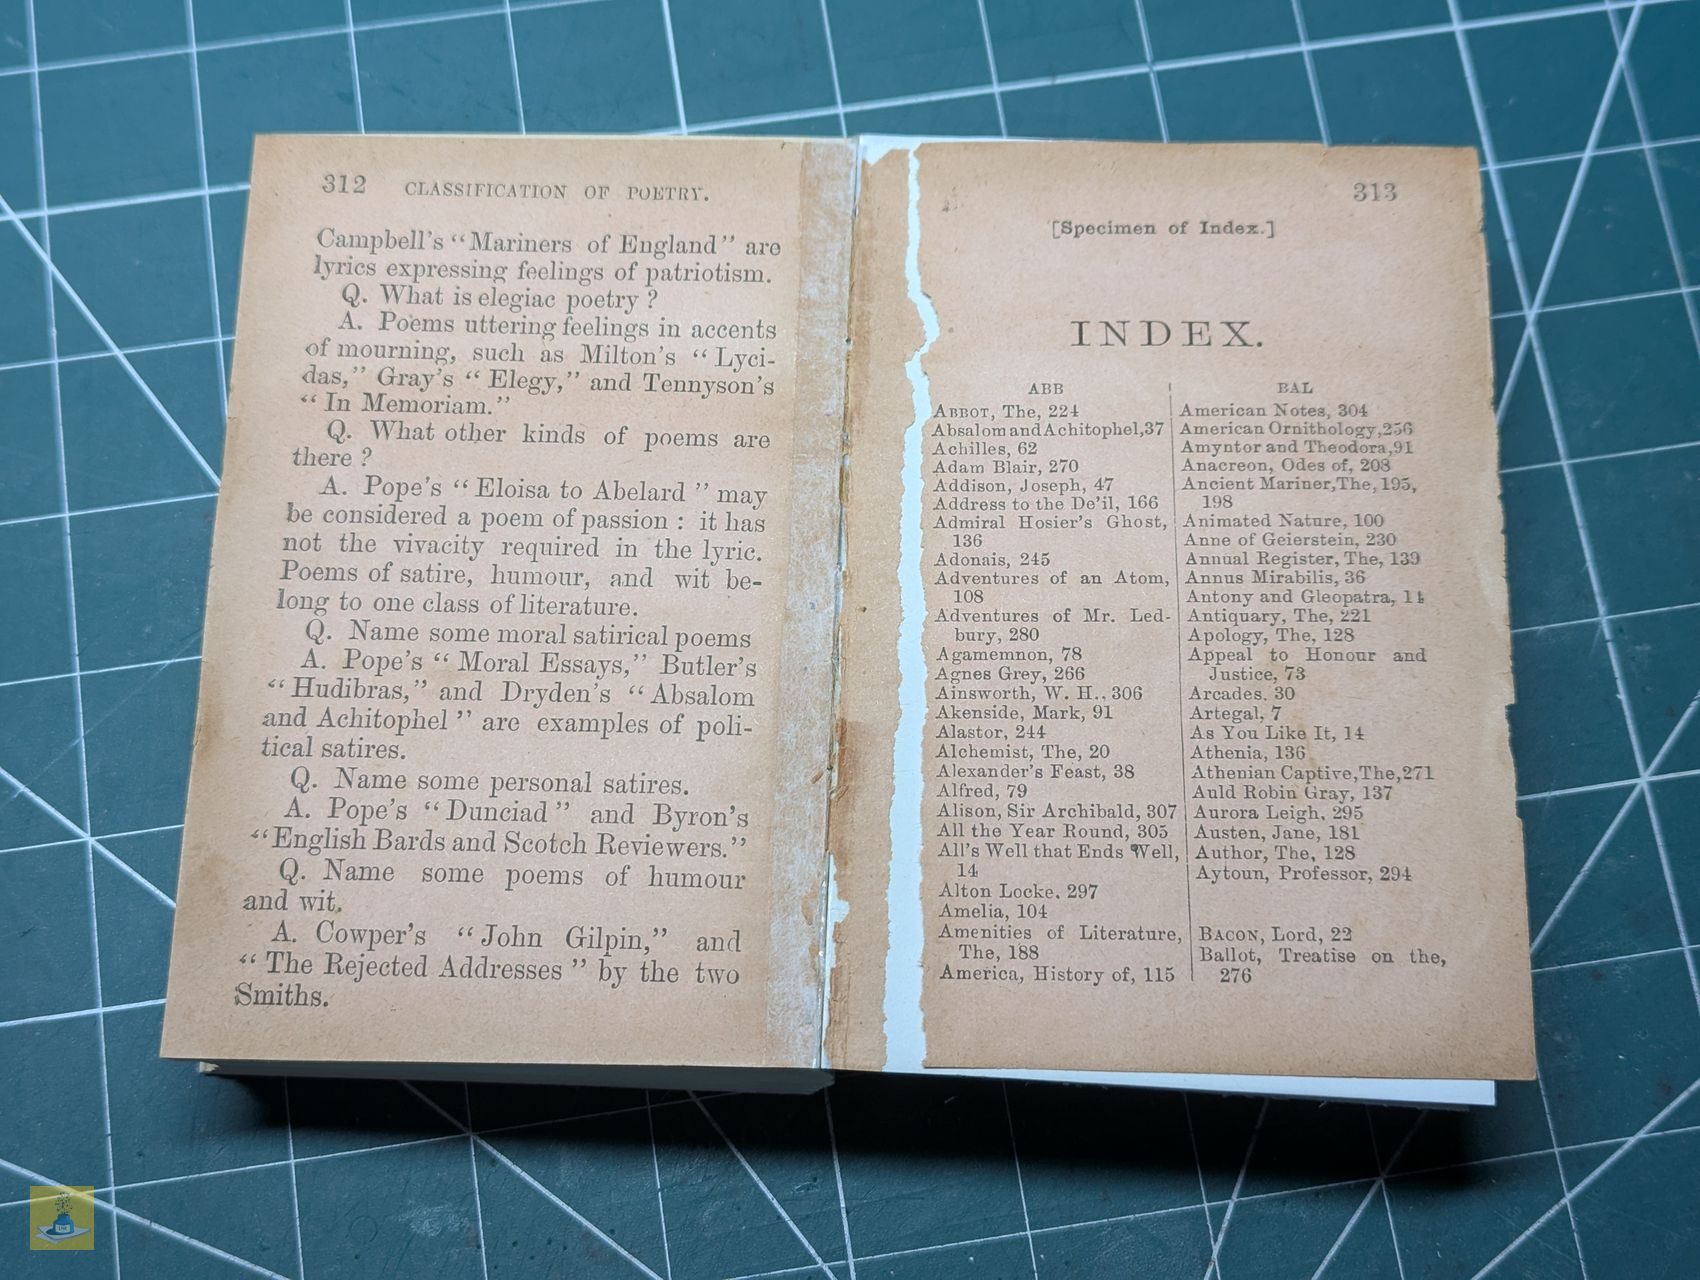 312 CLASSIFICATION OF POETRY.
Campbell's "Mariners of England" are
lyrics expressing feelings of patriotism.
Q. What is elegiac poetry ?
A. Poems uttering feelings in accents
of mourning, such as Milton's "Lyci-
das," Gray's "Elegy," and Tennyson's
"In Memoriam."
Q. What other kinds of poems are
there ?
A. Pope's "Eloisa to Abelard" may
be considered a poem of passion : it has
not the vivacity required in the lyric.
Poems of satire, humour, and wit be-
long to one class of literature.
Q. Name some moral satirical poems
A. Pope's "Moral Essays," Butler's
"Hudibras," and Dryden's "Absalom
and Achitophel" are examples of poli-
tical satires.
Q. Name some personal satires.
A. Pope's "Dunciad" and Byron's
"English Bards and Scotch Reviewers."
Q. Name some poems of humour
and wit.
A. Cowper's "John Gilpin," and
"The Rejected Addresses" by the two
Smiths.
313
[Specimen of Index.]
INDEX.
ABB
ABBOT, The, 224
Absalom and Achitophel, 37
Achilles, 62
Adam Blair, 270
Addison, Joseph, 47
Address to the De'il, 166
Admiral Hosier's Ghost,
136
Adonais, 245
Adventures of an Atom,
108
Adventures of Mr. Led-
bury, 280
Agamemnon, 78
Agnes Grey, 266
Ainsworth, W. H., 306
Akenside, Mark, 91
Alastor, 244
Alchemist, The, 20
Alexander's Feast, 38
Alfred, 79
Alison, Sir Archibald, 307
All the Year Round, 305
All's Well that Ends Well,
14
Alton Locke, 297
Amelia, 104
Amenities of Literature,
The, 188
America, History of, 115
BAL
American Notes, 304
American Ornithology, 256
Amyntor and Theodora, 91
Anacreon, Odes of, 208
Ancient Mariner, The, 195,
198
Animated Nature, 100
Anne of Geierstein, 230
Annual Register, The, 139
Annus Mirabilis, 36
Antony and Gleopatra, 14
Antiquary, The, 221
Apology, The, 128
Appeal to Honour and
Justice, 73
Arcades, 30
Artegal, 7
As You Like It, 14
Athenia, 136
Athenian Captive, The, 271
Auld Robin Gray, 137
Aurora Leigh, 295
Austen, Jane, 181
Author, The, 128
Aytoun, Professor, 294
BACON, Lord, 22
Ballot, Treatise on the,
276